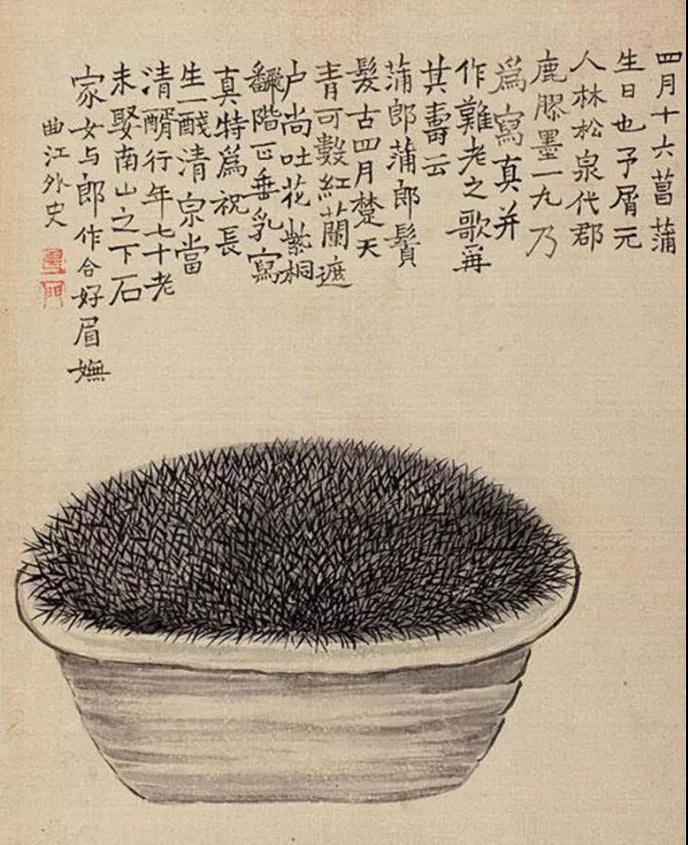 四月十六菖蒲
生日也予屑元
人林松泉代郡
鹿膠墨一丸乃
爲寫真并
作難老之歌爯
其壽云
蒲郎蒲郎鬚
髮古四月楚天
青可數紅蘭遮
户尚吐花紫桐
翻階正垂乳寫
真特爲祝長
生一醆清泉當
清醑行年七十老
未娶南山之下石
家女与郎作合好眉嫵
曲江外史